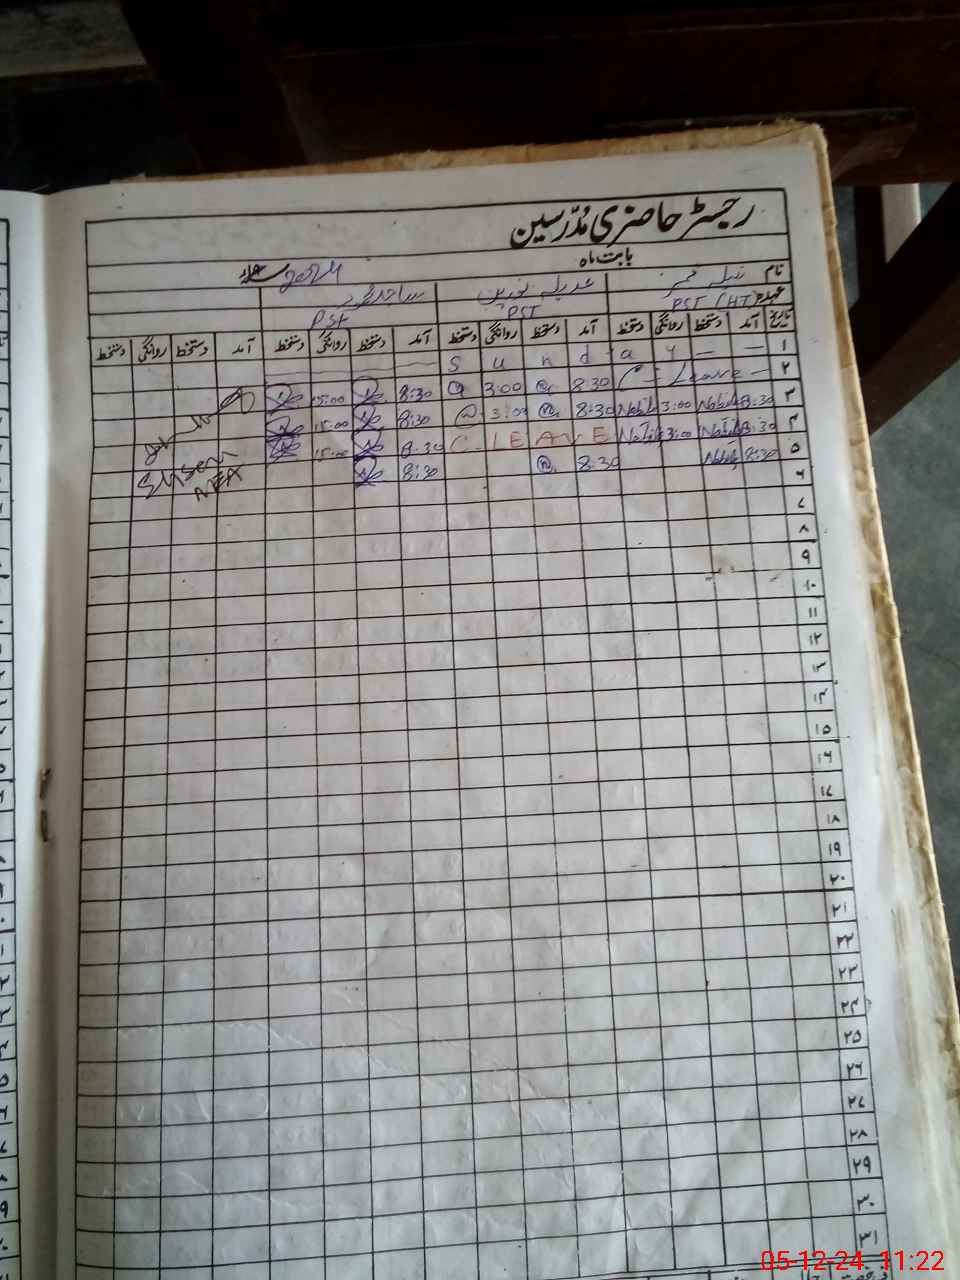 رجسٹر حاضری مُدرّسین
بابت ماہ
2024
نام
عہدہ PST (HT) PST PST
تاریخ آمد دستخط روانگی دستخط آمد دستخط روانگی دستخط آمد دستخط روانگی دستخط آمد دستخط روانگی دستخط
۱ S u n d a y — —
۲ C - Leave - 8:30 3:00 8:30 15:00
۳ 8:30 Nabila 3:00 Nabila 8:30 3:00 8:30 15:00
۴ 8:30 Nabila 3:00 Nabila C. LEAVE 8:30 15:00
۵ 8:30 Nabila 8:30 8:30
۶
۷
۸
۹
۱۰
۱۱
۱۲
۱۳
۱۴
۱۵
۱۶
۱۷
۱۸
۱۹
۲۰
۲۱
۲۲
۲۳
۲۴
۲۵
۲۶
۲۷
۲۸
۲۹
۳۰
۳۱
05-12-24 11:22